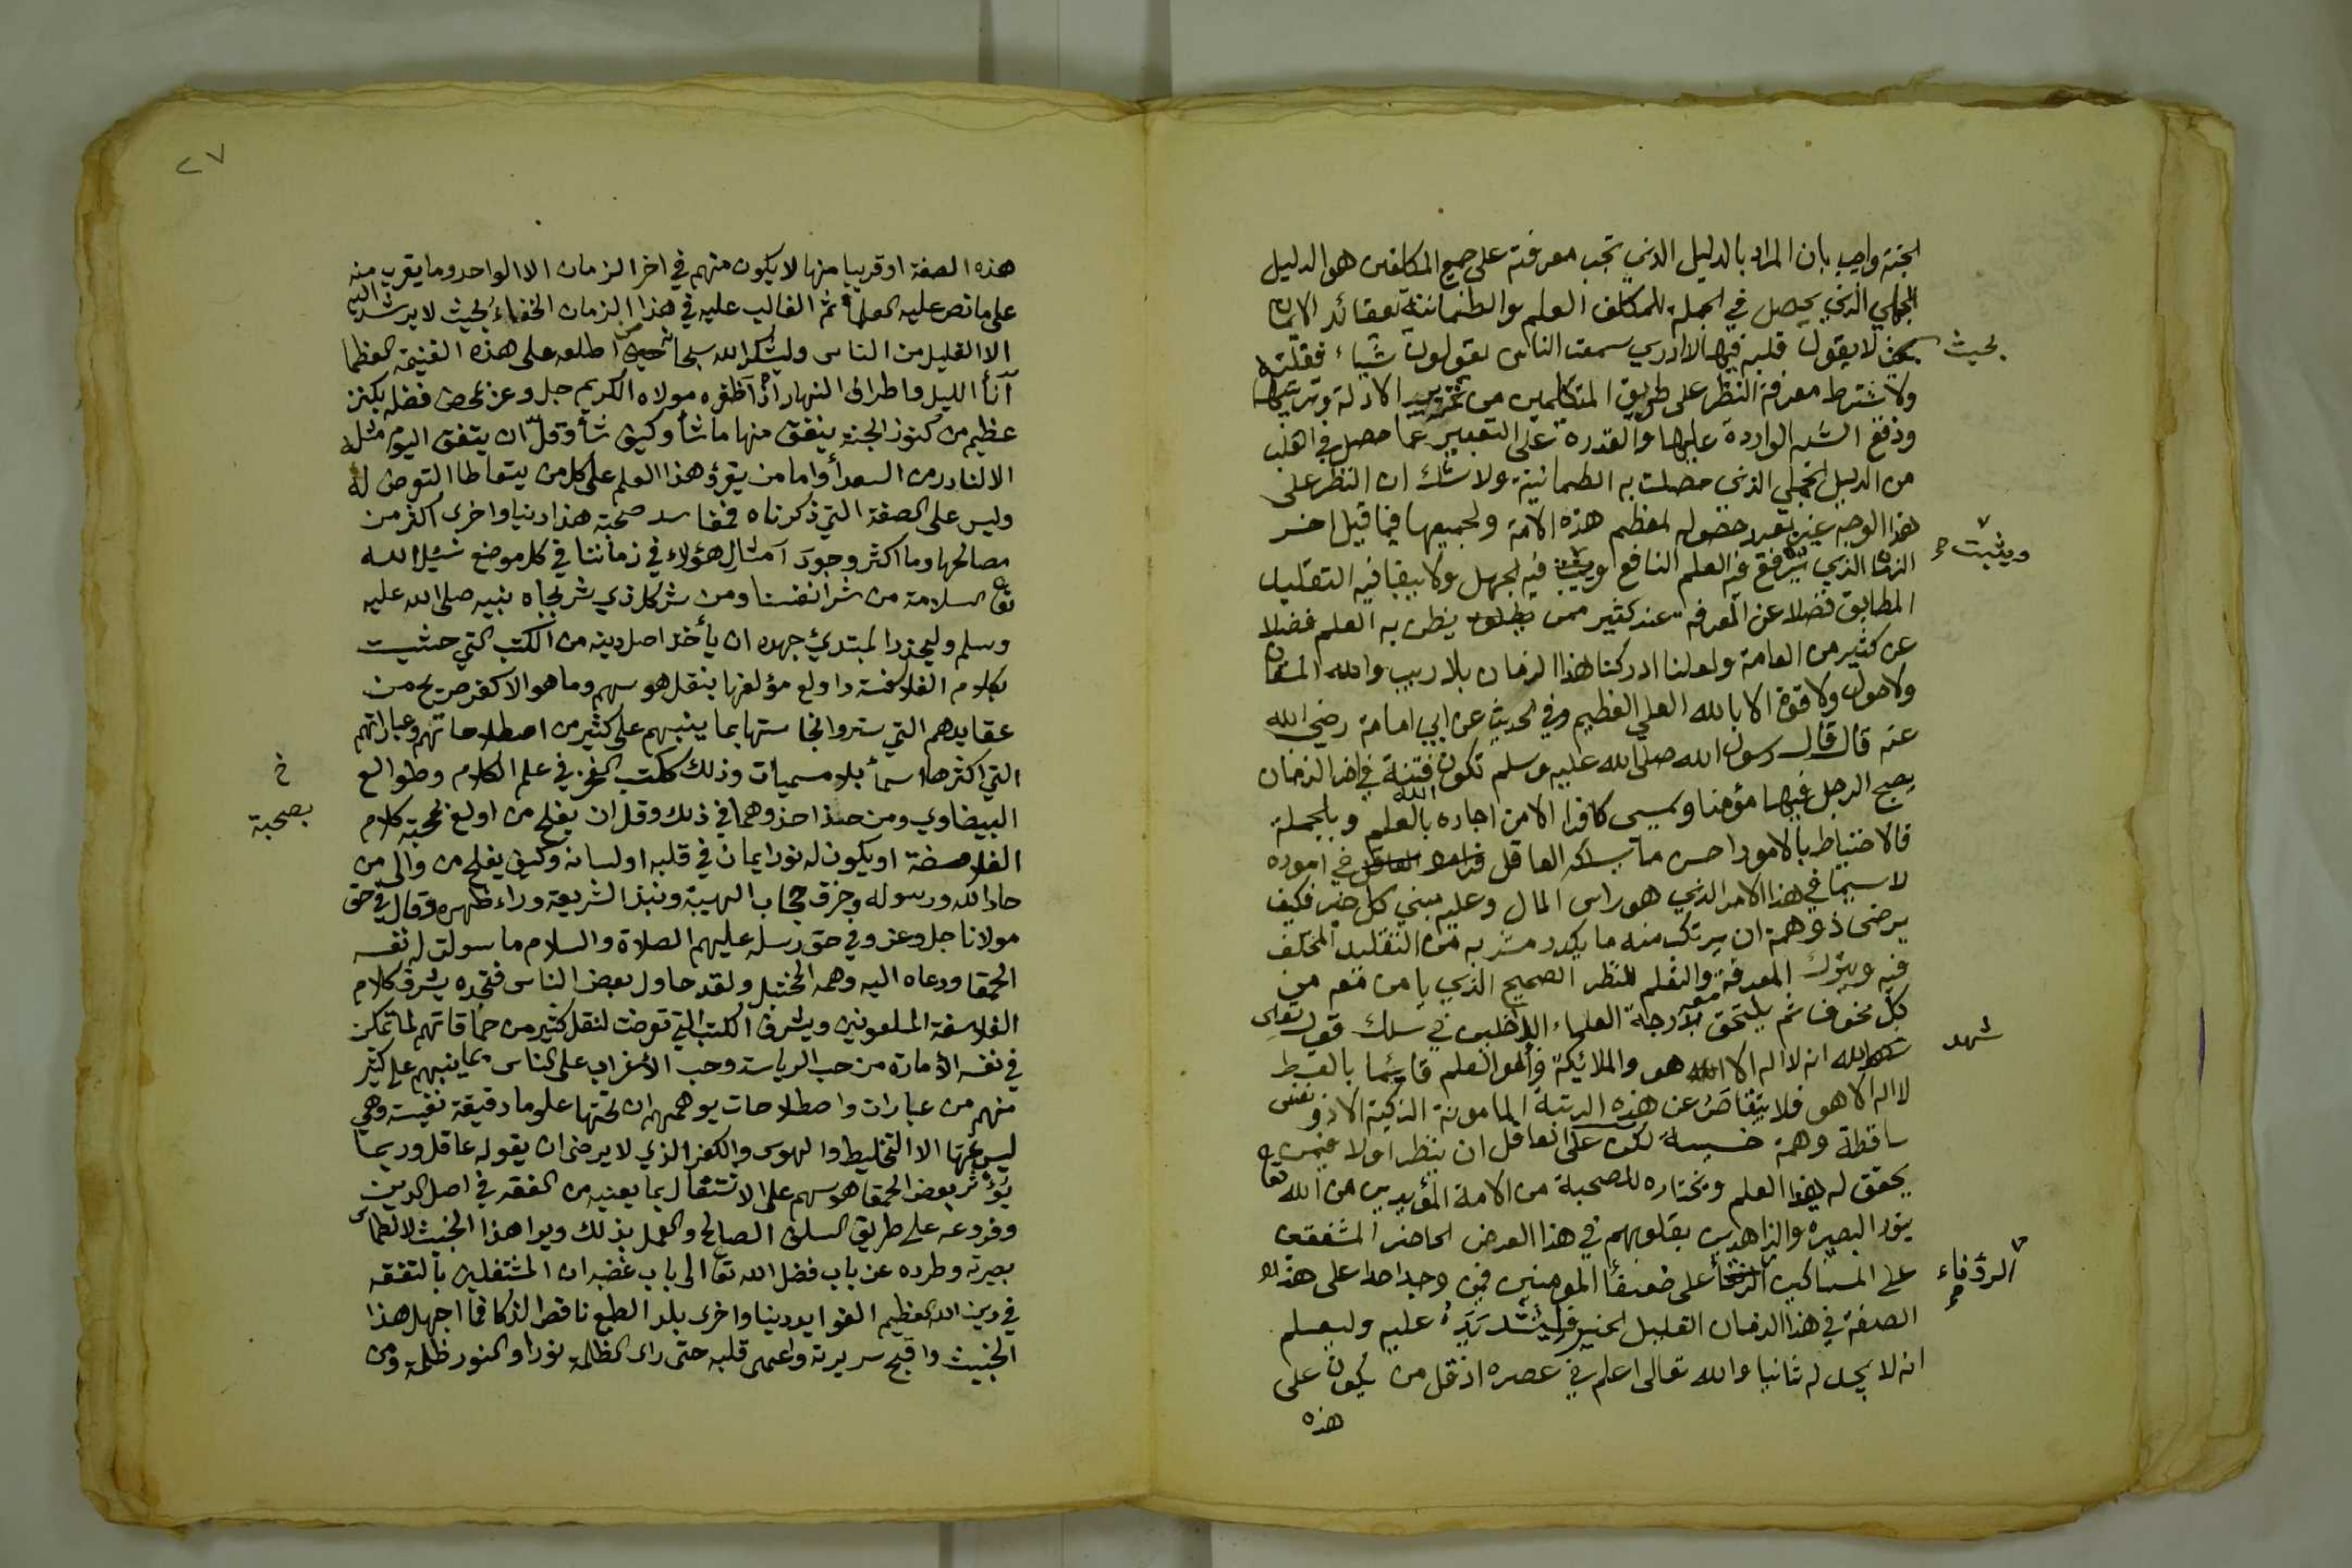 الجنة واجيب بان المراد بالدليل الذي تجب معرفته على جميع المكلفين هو الدليل
الجملي الذي يحصل في الجملة للمكلف العلم والطمانينة بعقائد الايمان
بحيث لا يقول قلبه فيها لا ادري سمعت الناس يقولون شياء فقلته
ولا يشترط معرفة النظر على طريق المتكلمين من تحرير الادلة وترتيبها
ودفع الشبه الواردة عليها والقدرة على التعبير عما حصل في القلب
من الدليل الجملي الذي حصلت به الطمانينة ولا شك ان النظر على
هذا الوجه غير بعيد حصوله لمعظم هذه الامة ولجميعها فيما قبل اخر
الزمان الذي يرفع فيه العلم النافع ويثبت فيه الجهل ولا يبقا فيه التقليد
المطابق فضلا عن المعرفة عند كثير ممن يظن به العلم فضلا
عن كثير من العامة ولعلنا ادركنا هذا الزمان بلا ريب والله المستعان
ولا حول ولا قوة الا بالله العلي العظيم وفي الحديث عن ابي امامة رضي الله
عنه قال قال رسول الله صلى الله عليه وسلم تكون فتنة في اخر الزمان
يصبح الرجل فيها مؤمنا ويمسي كافرا الا من اجاره الله بالعلم وبالجملة
فالاحتياط بالامور احسن ما يسلكه العاقل في اموره
لا سيما في هذا الامر الذي هو راس المال وعليه مبنى كل خير فكيف
يرضى ذو همة ان يرتكب منه ما يكدر مشربه من التقليد المختلف
فيه ويترك المعرفة والتعلم للنظر الصحيح الذي يامن معه من
كل مخوف ثم يلتحق معه بدرجة العلماء الداخلين في سلك قوله تعالى
الله انه لا اله الا هو والملائكة واولوا العلم قائما بالقسط
لا اله الا هو فلا يتقاصر عن هذه الرتبة المامونة الذكية الا ذو نفس
ساقطة وهمة خسيسة لكن على العاقل ان ينظر اولا فيمن
يحقق له هذا العلم ويختاره للصحبة من الائمة المؤيدين من الله تعا
بنور البصيرة والزاهدين بقلوبهم في هذا العرض الحاضر المشفقين
على المساكين على ضعفأ المومنين فمن وجد احدا على هذه
الصفة في هذا الزمان القليل الخير فليشد يده عليه وليعلم
انه لا يجد له ثانيا والله تعالى اعلم في عصره اذ قل من يكون على
هذه
بحيث
ويثبت
شهد
الرؤفاء
٢٧
هذه الصفة او قريبا منها لا يكون منهم في اخر الزمان الا الواحد وما يقرب منه
على ما نص عليه العلما ثم الغالب عليه في هذا الزمان الخفاء بحيث لا يرشد اليه
الا القليل من الناس وليشكر الله سبحانه من اطلعه على هذه الغنيمة العظما
آنأ الليل واطراف النهار اذ اظفره مولاه الكريم جل وعز بمحض فضله بكنز
عظيم من كنوز الجنة ينفق منها ما شأ وكيف شأ وقل ان يتفق اليوم مثله
الا لنادر من السعدأ واما من يقرؤ هذا العلم على كل من يتعاطا التعرض له
وليس على الصفة التي ذكرناه فمفاسد صحبة هذا دنيا واخرى اكثر من
مصالحها وما اكثر وجود امثال هؤلاء في زماننا في كل موضع نسئل الله
تعا السلامة من شر انفسنا ومن شر كل ذي شر بجاه نبيه صلى الله عليه
وسلم وليحذر المبتدئ جهده ان يأخذ اصل دينه من الكتب التي حشيت
بكلام الفلاسفة واولع مؤلفها بنقل هوسهم وما هو الا كفر صريح من
عقايدهم التي ستروا نجاستها بما ينبهم على كثير من اصطلاحاتهم وعباراتهم
التي اكثرها اسمأ بلا مسميات وذلك ككتب الفخر في علم الكلام وطوالع
البيضاوي ومن حذا حذوهما في ذلك وقل ان يفلح من اولع بمحبة كلام
الفلاسفة او يكون له نور ايمان في قلبه او لسانه وكيف يفلح من والى من
حاد الله ورسوله وخرق حجاب الهيبة ونبذ الشريعة وراء ظهره وقال في حق
مولانا جل وعز وفي حق رسله عليهم الصلاة والسلام ما سولت له نفسه
الحمقا ودعاه اليه وهمه المختبل ولقد حاول بعض الناس فتجده يشرف كلام
الفلاسفة الملعونين ويشرف الكتب التي تعرضت لنقل كثير من حماقاتهم لما تمكن
في نفسه الأمارة من حب الرياسة وحب الأغراب على الناس بما ينبهم على كثير
منهم من عبارات واصطلاحات يوهمهم ان تحتها علوما دقيقة نفيسة وهي
ليس تحتها الا التخليط والهوس والكفر الذي لا يرضى ان يقوله عاقل وربما
يؤثر بعض الحمقا هوسهم على الاشتغال بما يعنيه من الفقه في اصل الدين
وفروعه على طريق السلف الصالح والعمل بذلك ويرا هذا الخبيث لانطماس
بصيرته وطرده عن باب فضل الله تعا الى باب غضبه ان المشتغلين بالتفقه
في دين الله العظيم الفوايد دينا واخرى بلدا الطبع ناقص الذكا فما اجهل هذا
الخبيث واقبح سريرته واعمى قلبه حتى راى الظلمة نورا والنور ظلمة ومن
خ
بصحبة